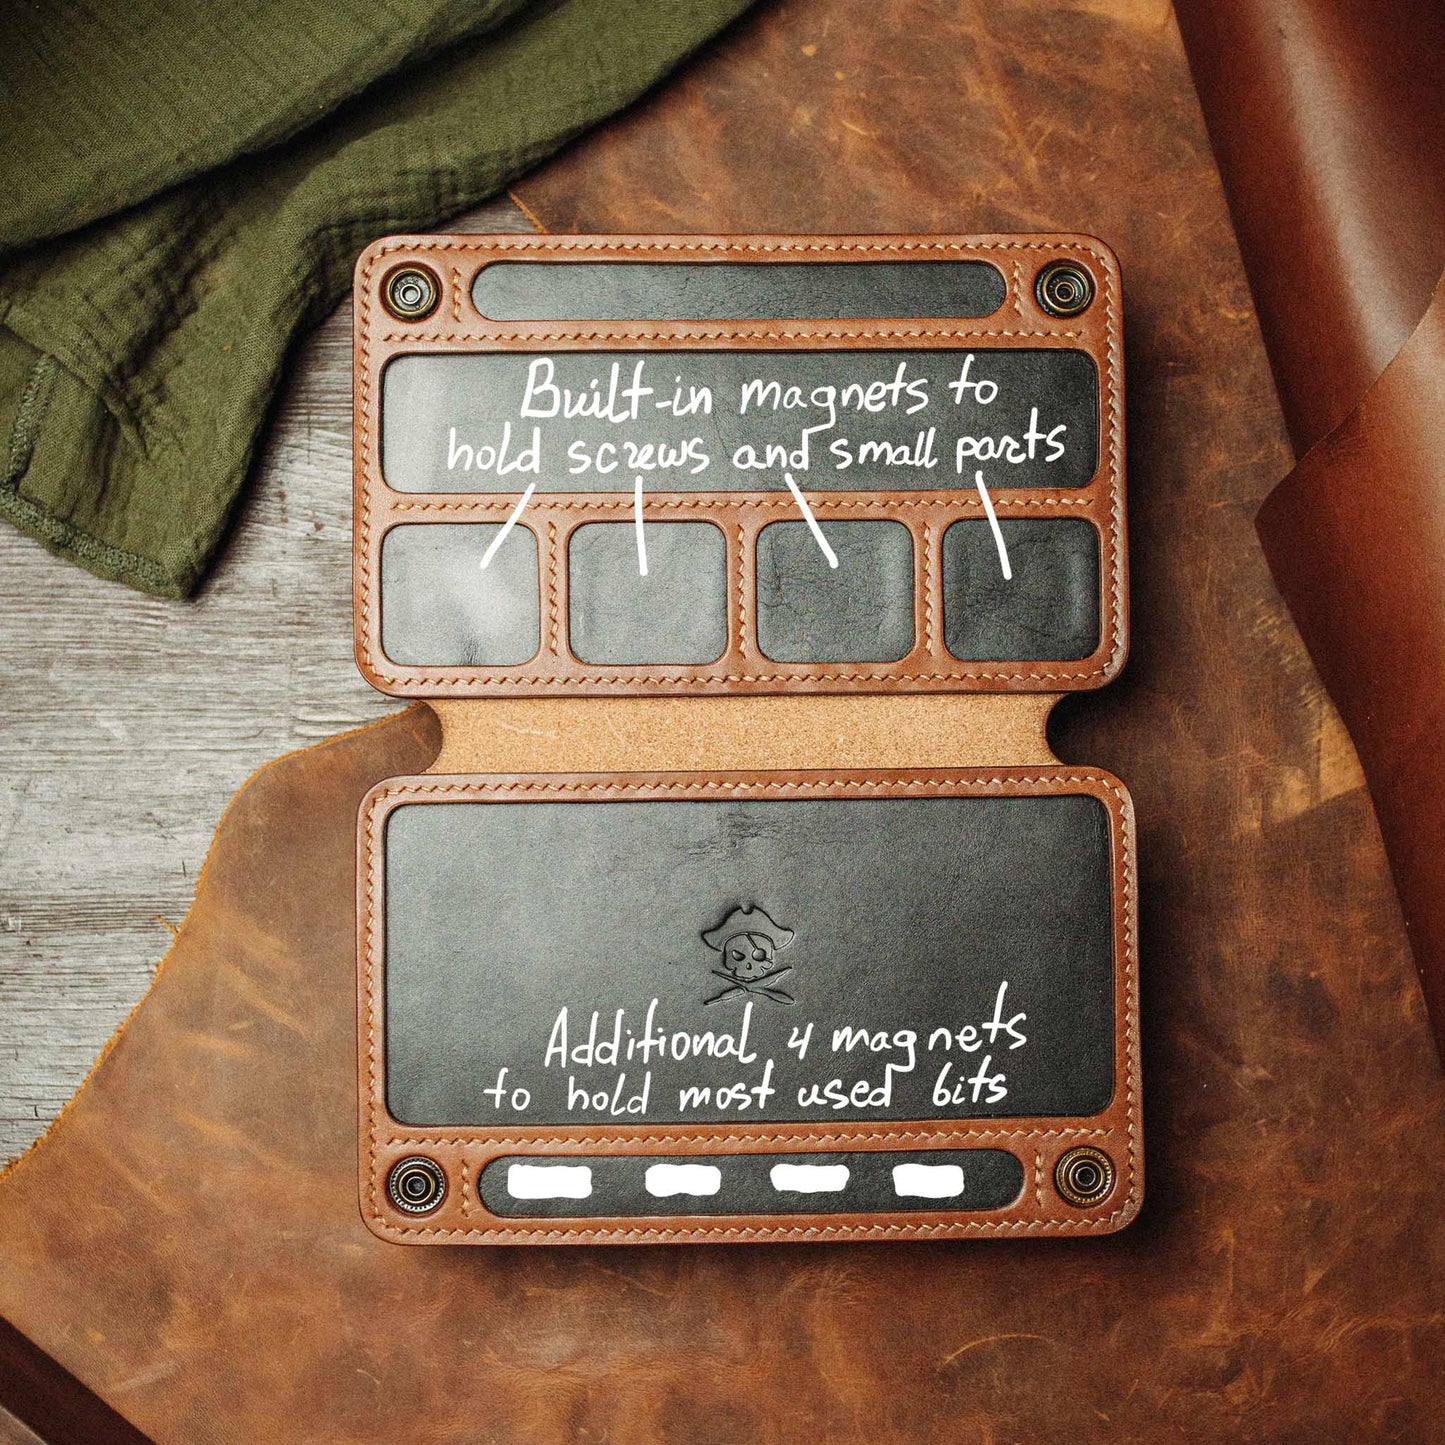 Built-in magnets to
hold screws and small parts
Additional 4 magnets
to hold most used bits